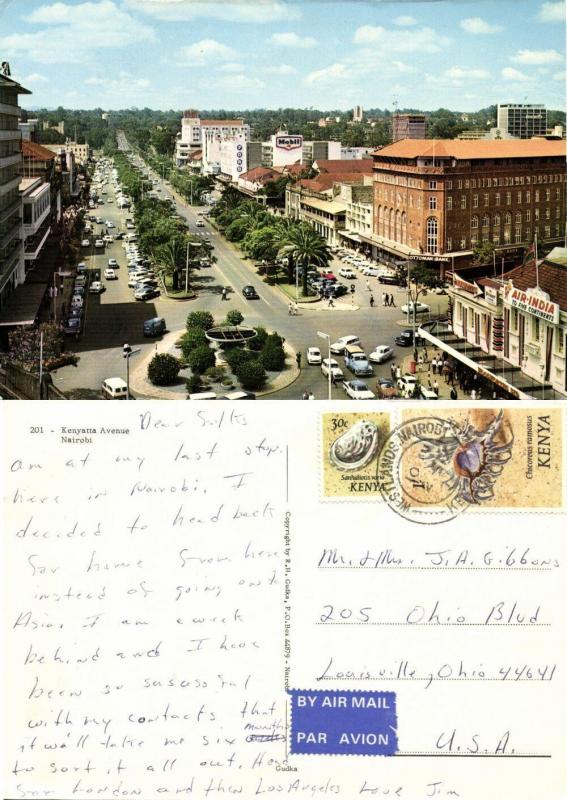 Mobil
OTTOMAN BANK
AIR-INDIA
201 - Kenyatta Avenue
Nairobi
Dear Folks
am at my last stop.
here in Nairobi. I
decided to head back
for home from here
instead of going onto
Asia. I am a week
behind and I have
been so sucessful
with my contacts that
it wall take me six months
to sort it all out. Head
for London and then Los Angeles Love Jim
Copyright by R.H. Gudka, P.O.Box 44879 - Nairobi
Gudka
30c
Sanhaliotis varia
KENYA
Chicoreus ramosus
KENYA
Mr. & Mrs. J.A. Gibbons
205 Ohio Blvd
Louisville, Ohio 44641
U.S.A.
BY AIR MAIL
PAR AVION